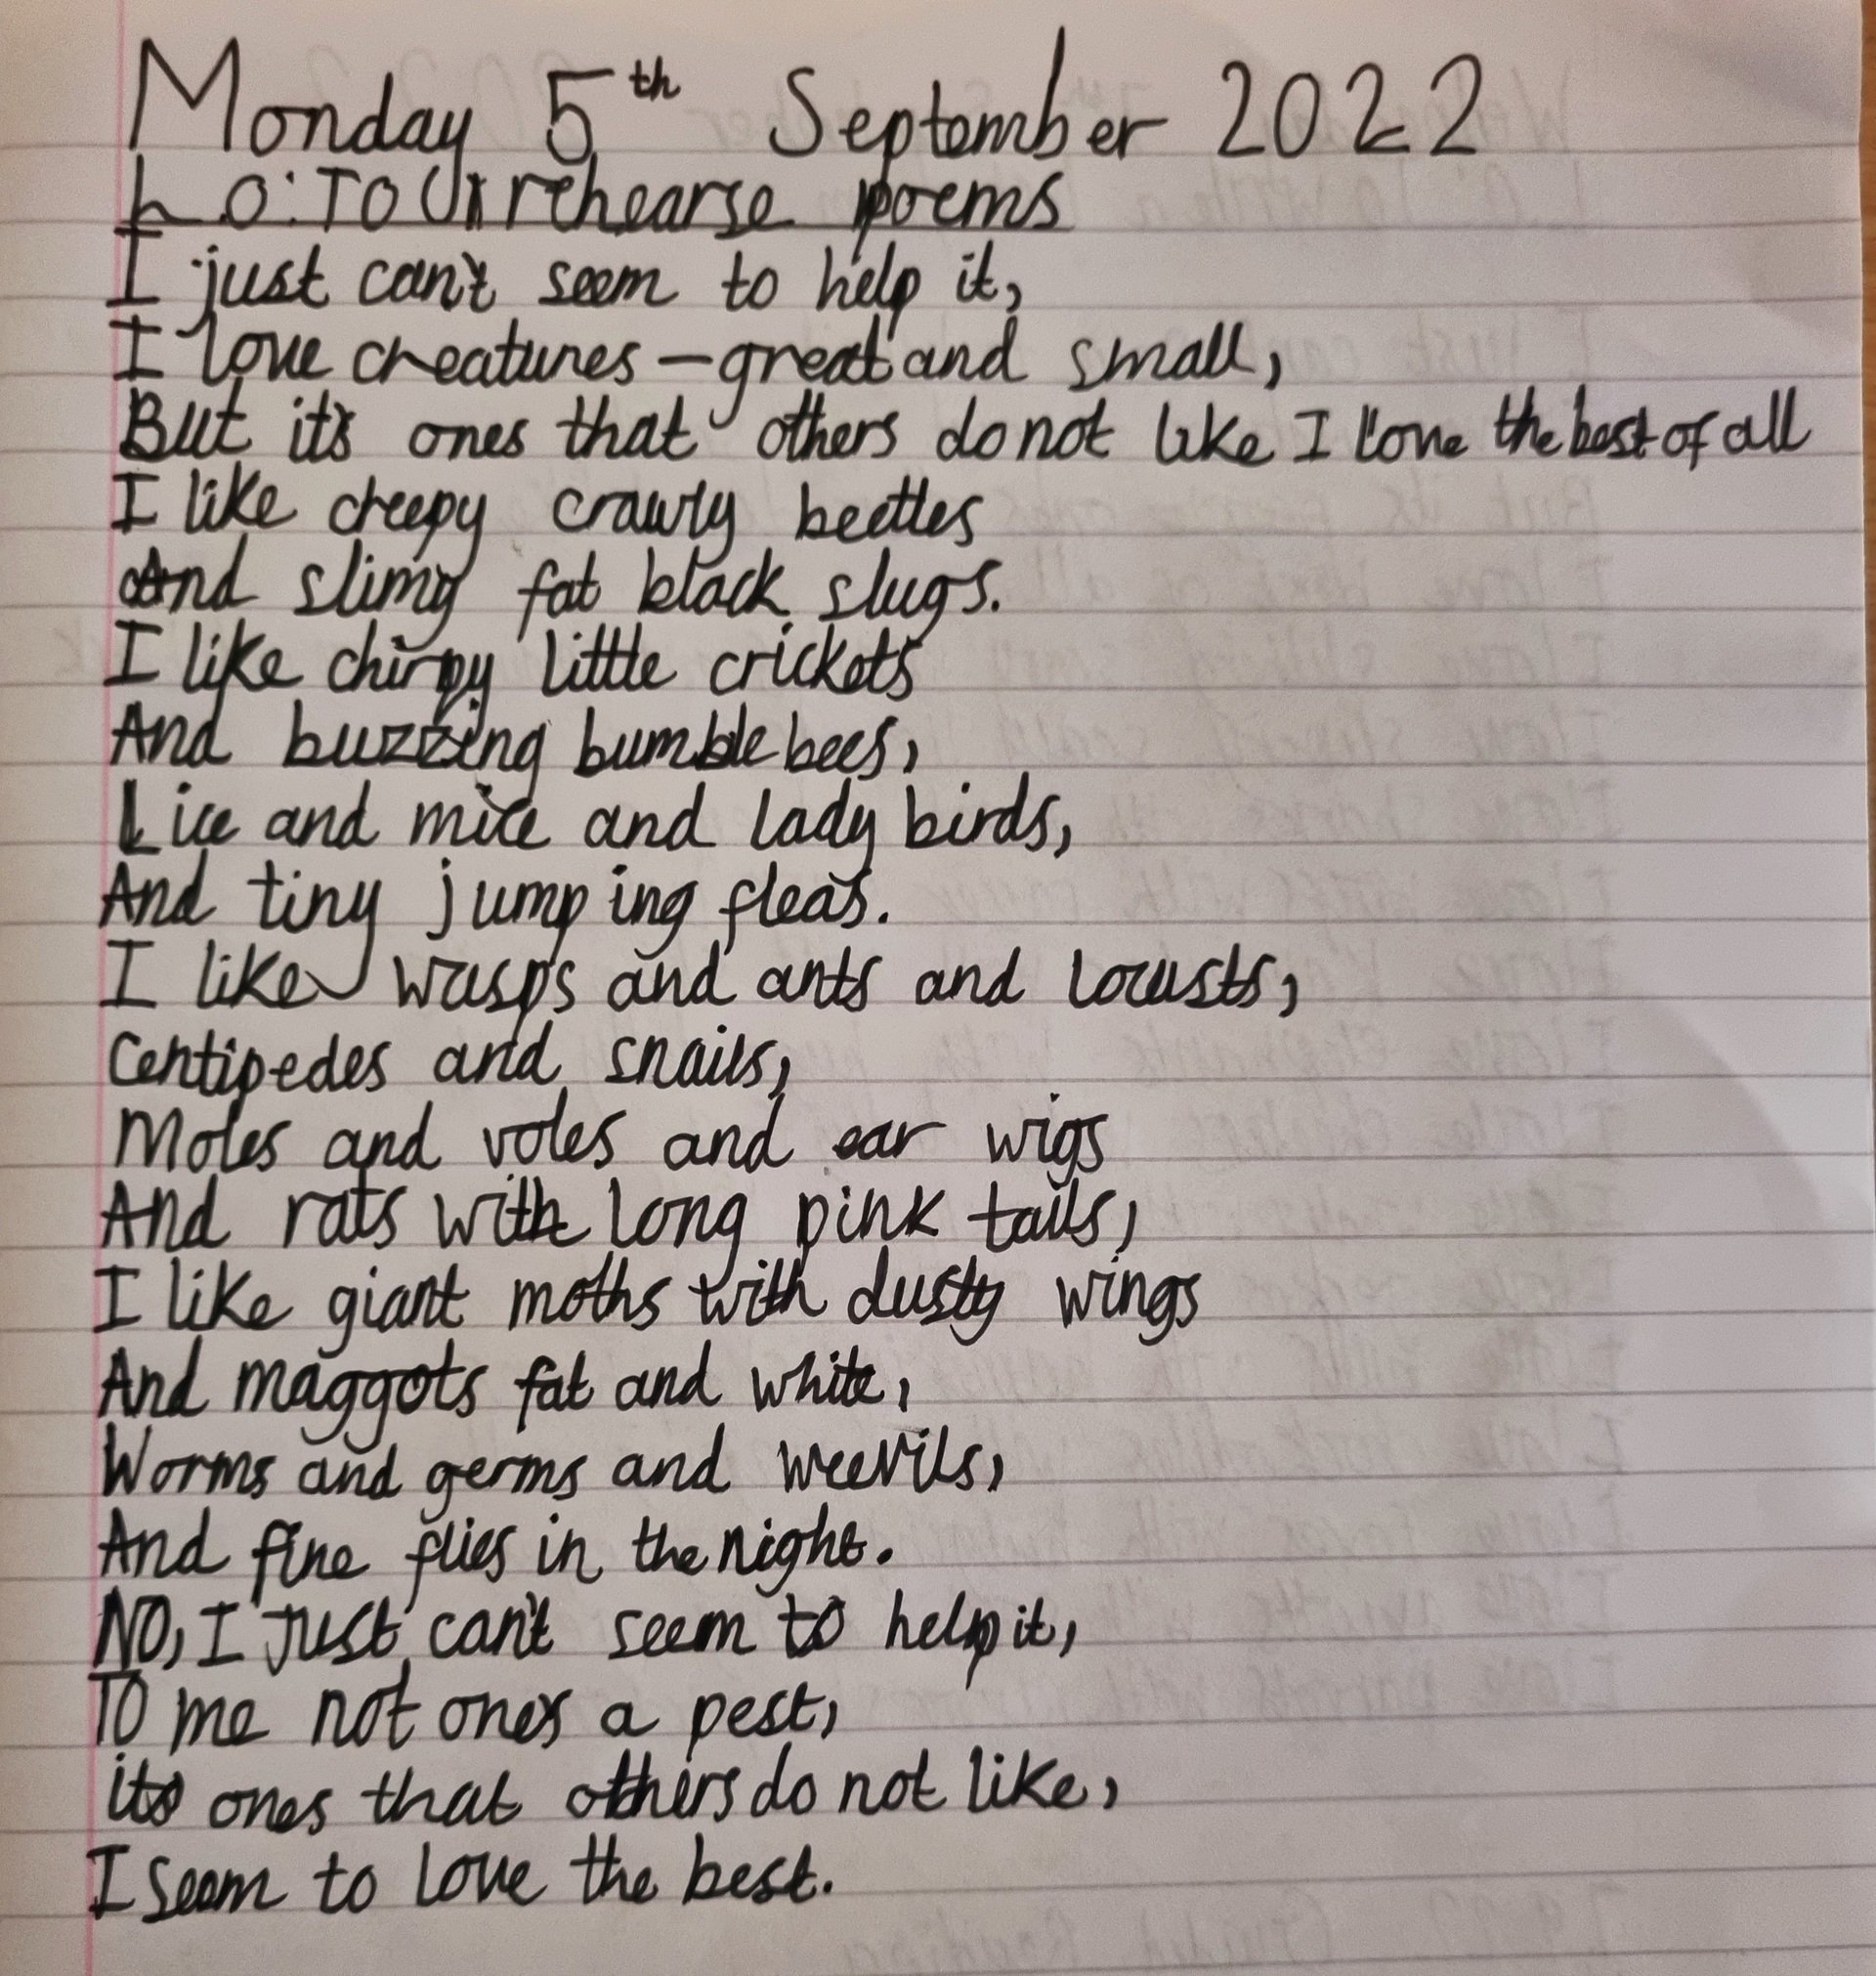 Monday 5th September 2022
L.O: To rehearse poems
I just can't seem to help it,
I love creatures - great and small,
But it's ones that others do not like I love the best of all
I like creepy crawly beetles
And slimy fat black slugs.
I like chirpy little crickets
And buzzing bumble bees,
Lice and mice and lady birds,
And tiny jumping fleas.
I like wasps and ants and locusts,
Centipedes and snails,
Moles and voles and ear wigs
And rats with long pink tails,
I like giant moths with dusty wings
And maggots fat and white,
Worms and germs and weevils,
And fine flies in the night.
NO, I just can't seem to help it,
To me not one's a pest,
its ones that others do not like,
I seem to love the best.